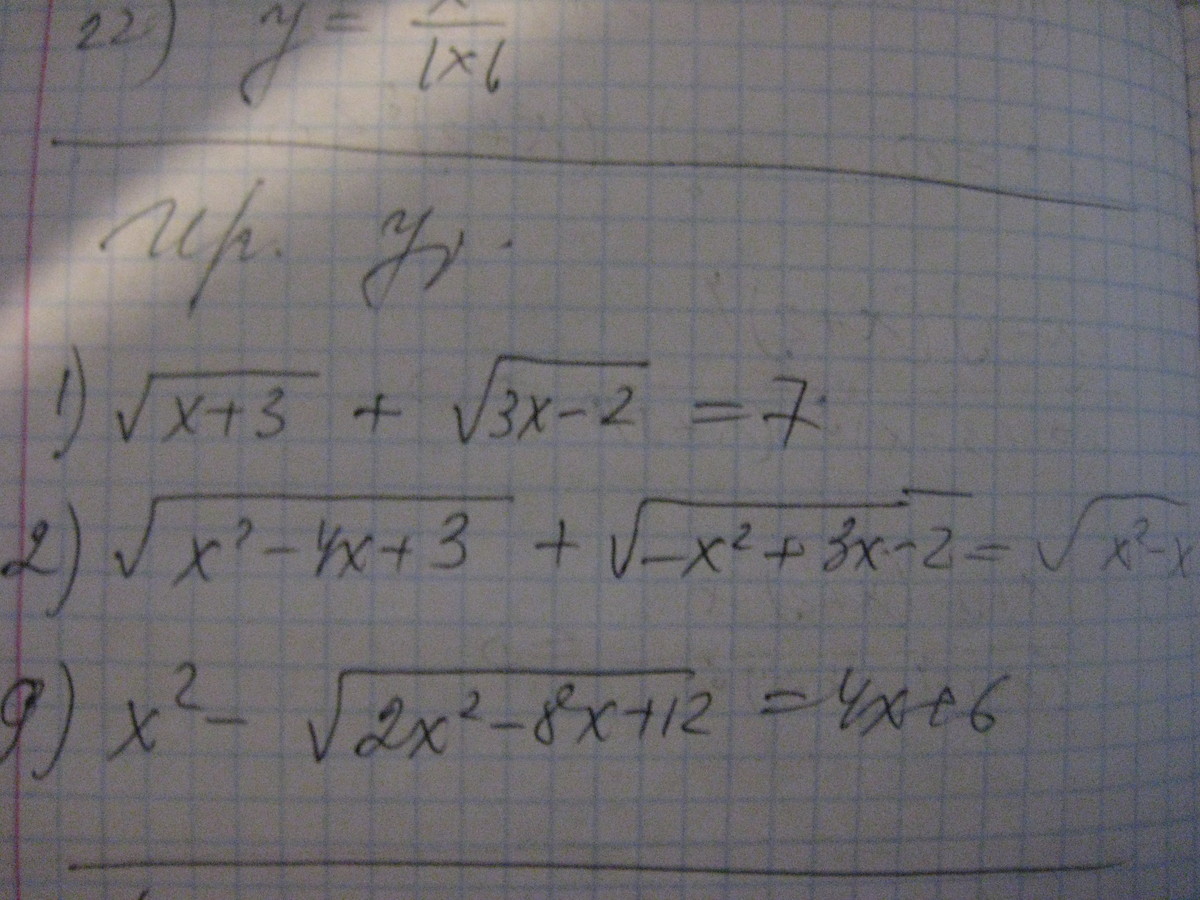 22) y = x/|x|
Ир. Ур.
1) √(x+3) + √(3x-2) = 7
2) √(x²-4x+3) + √(-x²+3x-2) = √(x²-x
9) x² - √(2x²-8x+12) = 4x+6